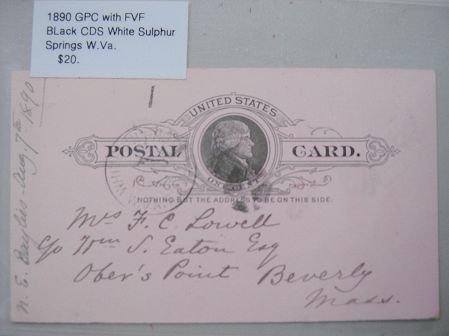 1890 GPC with FVF
BLack CDS White Sulphur
Springs W.Va.
$20.
UNITED STATES
POSTAL CARD.
ONE CENT
NOTHING BUT THE ADDRESS TO BE ON THIS SIDE.
Mrs F. C. Lowell
c/o Wm S. Eaton Esq
Ober's Point Beverly
Mass.
N. E. Baylies Aug 7th 1890